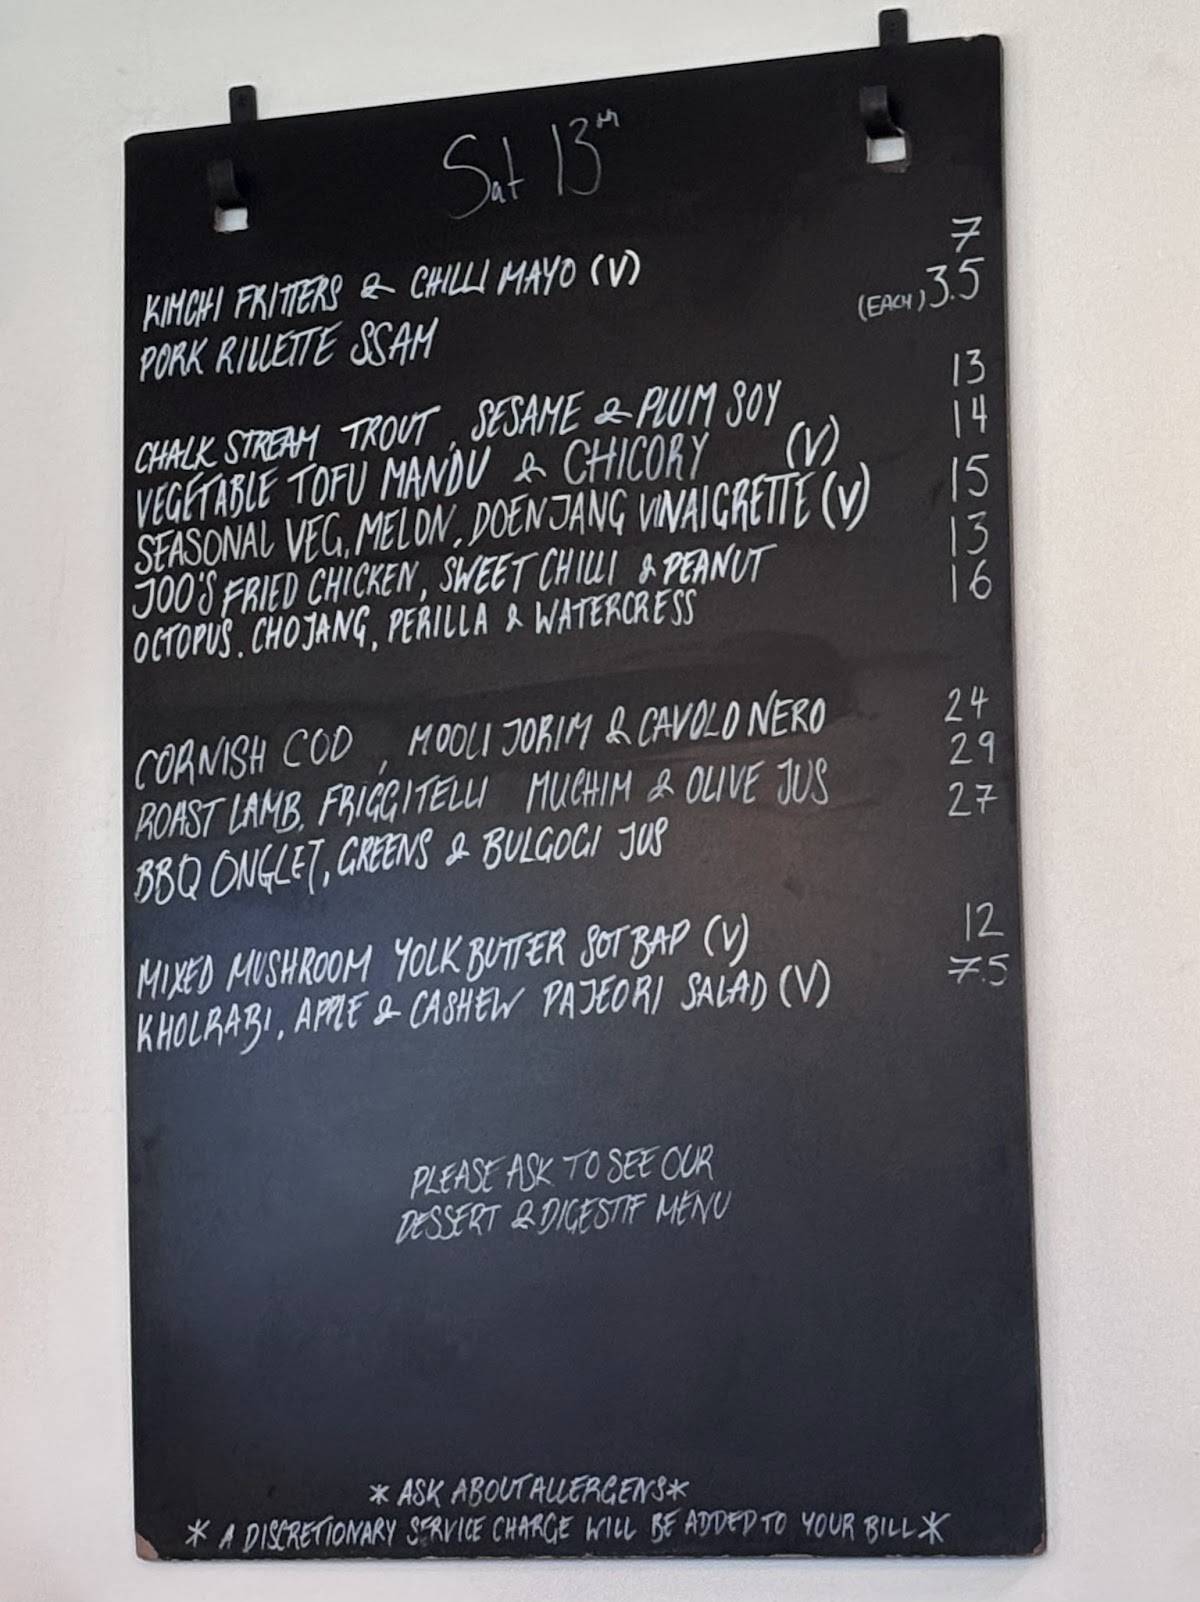 Sat 13th
KIMCHI FRITTERS & CHILLI MAYO (V) 7
PORK RILLETTE SSAM (EACH) 3.5
CHALK STREAM TROUT, SESAME & PLUM SOY 13
VEGETABLE TOFU MANDU & CHICORY (V) 14
SEASONAL VEG, MELON, DOENJANG VINAIGRETTE (V) 15
JOO'S FRIED CHICKEN, SWEET CHILLI & PEANUT 13
OCTOPUS, CHOJANG, PERILLA & WATERCRESS 16
CORNISH COD, MOOLI JORIM & CAVOLO NERO 24
ROAST LAMB, FRIGGITELLI MUCHIM & OLIVE JUS 29
BBQ ONGLET, GREENS & BULGOGI JUS 27
MIXED MUSHROOM YOLK BUTTER SOT BAP (V) 12
KHOLRABI, APPLE & CASHEW PAJEORI SALAD (V) 7.5
PLEASE ASK TO SEE OUR
DESSERT & DIGESTIF MENU
* ASK ABOUT ALLERGENS *
* A DISCRETIONARY SERVICE CHARGE WILL BE ADDED TO YOUR BILL *